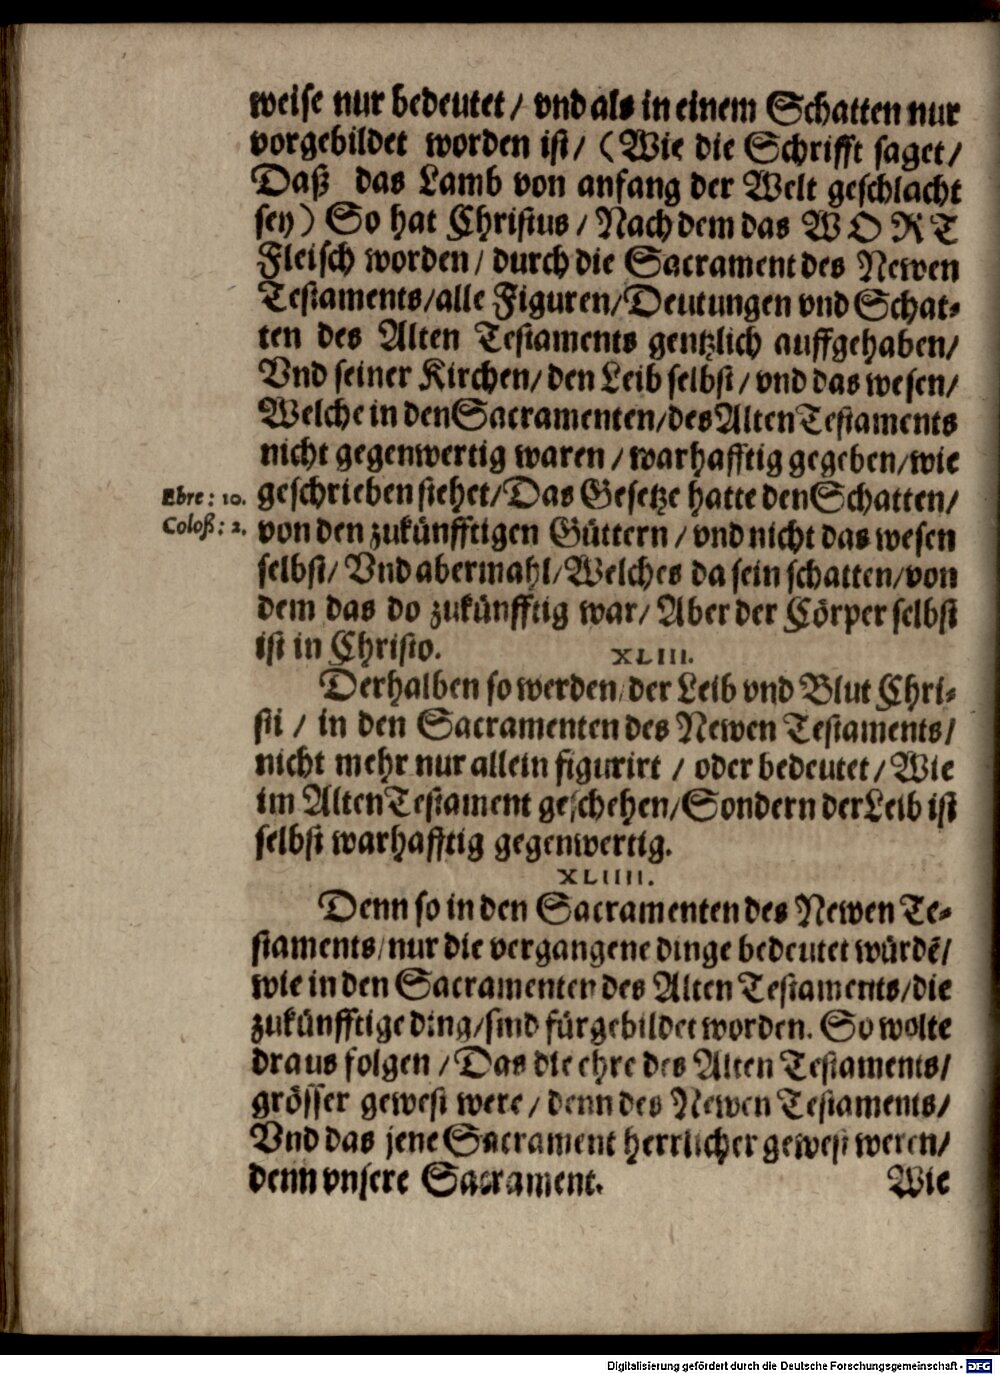 weise nur bedeutet / vnd als in einem Schatten nur
vorgebildet worden ist / (Wie die Schrifft saget /
Daß das Lamb von anfang der Welt geschlacht
sey) So hat Christus / Nach dem das WORT
Fleisch worden / durch die Sacrament des Newen
Testaments / alle Figuren / Deutungen vnd Schat-
ten des Alten Testaments gentzlich auffgehaben /
Vnd seiner Kirchen / den Leib selbst / vnd das wesen /
Welche in den Sacramenten / des Alten Testaments
nicht gegenwertig waren / warhafftig gegeben / wie
Ebre: 10. geschrieben stehet / Das Gesetze hatte den Schatten /
Coloß: 2. von den zukünfftigen Güttern / vnd nicht das wesen
selbst / Vnd abermahl / Welches da sein schatten / von
dem das do zukünfftig war / Aber der Cörper selbst
ist in Christo.
XLIII.
Derhalben so werden / der Leib vnd Blut Chri-
sti / in den Sacramenten des Newen Testaments /
nicht mehr nur allein figurirt / oder bedeutet / Wie
im Alten Testament geschehen / Sondern der Leib ist
selbst warhafftig gegenwertig.
XLIIII.
Denn so in den Sacramenten des Newen Te-
staments / nur die vergangene dinge bedeutet würdē /
wie in den Sacramenten des Alten Testaments / die
zukünfftige ding / sind fürgebildet worden. So wolte
draus folgen / Das die ehre des Alten Testaments /
grösser gewest were / denn des Newen Testaments /
Vnd das jene Sacrament herrlicher gewest weren /
denn vnsere Sacrament.
Wie
Digitalisierung gefördert durch die Deutsche Forschungsgemeinschaft - DFG